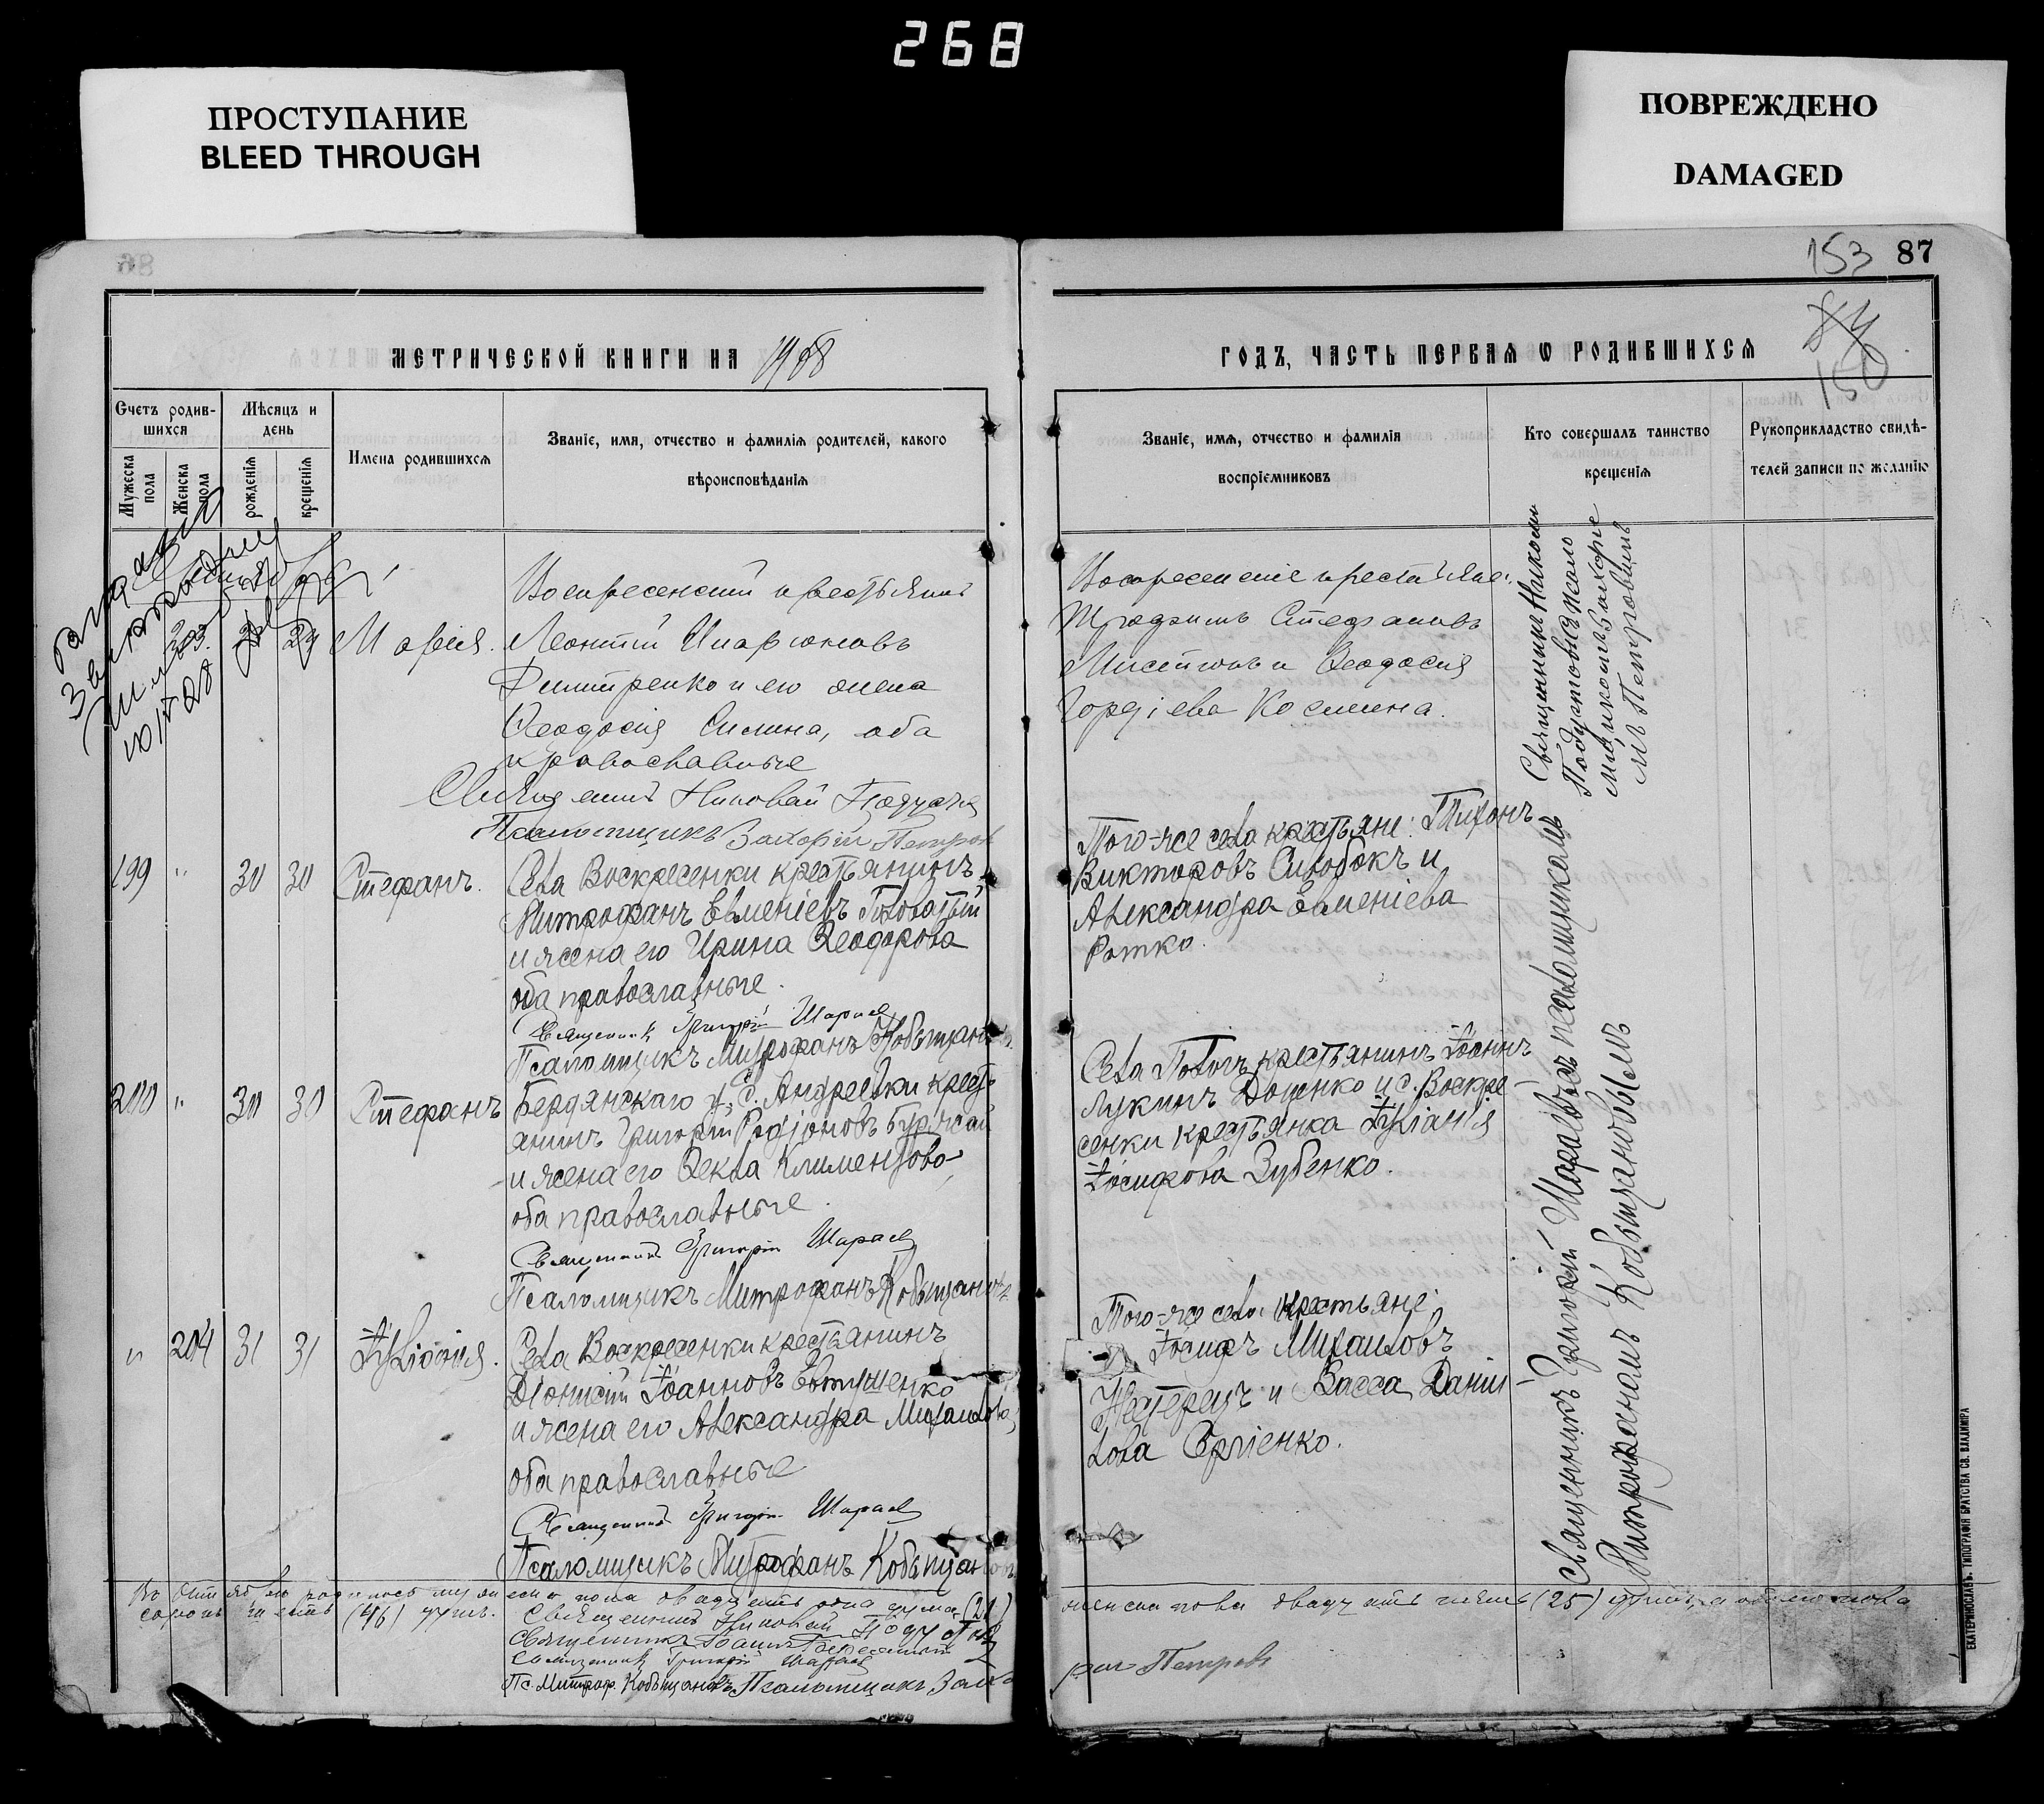 268
ПРОСТУПАНИЕ
BLEED THROUGH
ПОВРЕЖДЕНО
DAMAGED
153 87
МЕТРИЧЕСКОЙ КНИГИ НА 1908
ГОДЪ, ЧАСТЬ ПЕРВАЯ Ѡ РОДИВШИХСЯ
150
Счетъ родив-
шихся
Мужеска пола
Женска пола
Мѣсяцъ и
день
рожденія
крещенія
Имена родившихся
Званіе, имя, отчество и фамилія родителей, какого
вѣроисповѣданія
Званіе, имя, отчество и фамилія
воспріемниковъ
Кто совершалъ таинство
крещенія
Рукоприкладство свидѣ-
телей записи по желанію
203. 29 Марія.
Воскресенскій крестьянинъ
Леонтій Иларіоновъ
Дмитренко и его жена
Ѳеодосія Силина, оба
православные
Священникъ Николай
Псаломщикъ Захарій Петров
Воскресенскіе крестьяне:
Стефановъ
и Ѳеодосія
Гордіева Космина.
Священникъ Николай
съ псало
мщикомъ Захаріе
мъ Петровымъ
199 " 30 30 Стефанъ.
Села Воскресенки крестьянинъ
Митрофанъ Евменіевъ Головатый
и жена его Ирина Ѳеодорова
оба православные.
Священникъ Григорій Шараев
Псаломщикъ Митрофанъ Кобыщанов
Того-же села крестьяне: Тихонъ
Викторовъ Сиволокъ и
Александра Евменіева
200 " 30 30 Стефанъ
Бердянскаго у. С. Андреевки крест
анинъ Григорій Родіоновъ
и жена его Ѳекла Климентова
оба православные.
Священникъ Григорій Шараев
Псаломщикъ Митрофанъ Кобыщановъ
Села Пологъ крестьянинъ Іоаннъ
Лукинъ Доценко и с. Воскре-
сенки крестьянка Іуліанія
Іосифова Зубенко.
" 204 31 31 Іуліанія.
Села Воскресенки крестьянинъ
Діонисій Іоанновъ Евтушенко
и жена его Александра Михаилова
оба православные
Священникъ Григорій Шараев
Псаломщикъ Митрофанъ Кобыщанов
Того-же села крестьяне:
Іосифъ Михаиловъ
Нестерецъ и Васса Даніи-
лова Сергіенко.
Священникъ Григорій Шараевъ съ псаломщикомъ
Митрофаномъ Кобыщановымъ
Въ Октябрѣ родилось мужеска пола двадцать одна душа (21)
женска пола двадцать пять (25) душъ, а обоего пола
сорокъ шесть (46) душъ.
Священникъ Николай
Священникъ Іоаннъ
Священникъ Григорій Шараев
Пс. Митроф. Кобыщановъ, Псаломщикъ Заха
рій Петровъ
ЕКАТЕРИНОСЛАВЪ. ТИПОГРАФІЯ БРАТСТВА СВ. ВЛАДИМІРА